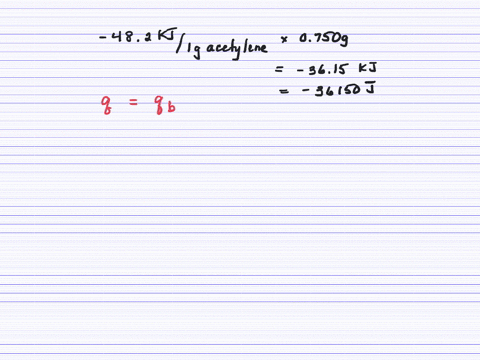 -48.2 KJ/1g acetylene × 0.750g
= -36.15 KJ
= -36150 J
q = qb